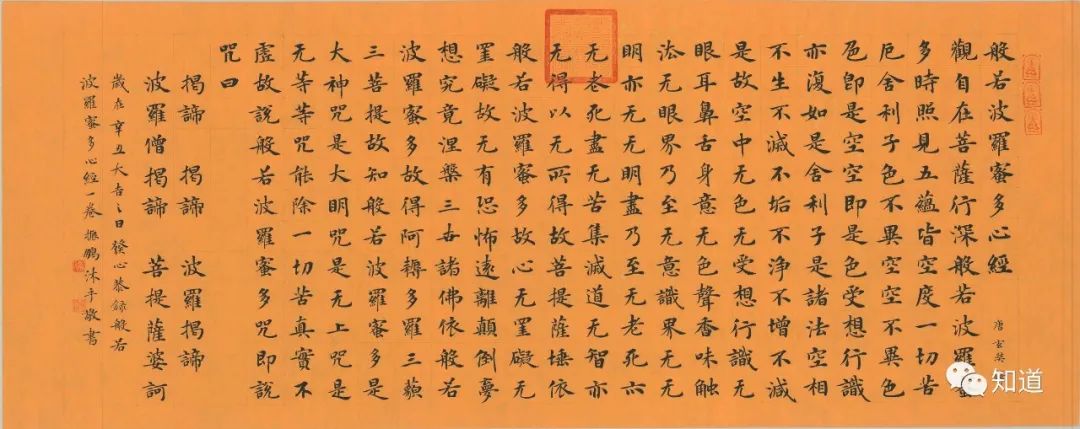 般若波羅蜜多心經
唐玄奘
觀自在菩薩行深般若波羅蜜
多時照見五蘊皆空度一切苦
厄舍利子色不異空空不異色
色即是空空即是色受想行識
亦復如是舍利子是諸法空相
不生不滅不垢不淨不增不減
是故空中无色无受想行識无
眼耳鼻舌身意无色聲香味觸
法无眼界乃至无意識界无无
明亦无无明盡乃至无老死亦
无老死盡无苦集滅道无智亦
无得以无所得故菩提薩埵依
般若波羅蜜多故心无罣礙无
罣礙故无有恐怖遠離顛倒夢
想究竟涅槃三世諸佛依般若
波羅蜜多故得阿耨多羅三藐
三菩提故知般若波羅蜜多是
大神咒是大明咒是无上咒是
无等等咒能除一切苦真實不
虛故說般若波羅蜜多咒即說
咒曰
揭諦 揭諦 波羅揭諦
波羅僧揭諦 菩提薩婆訶
歲在辛丑大吉之日發心恭錄般若
波羅蜜多心經一卷 振鵬沐手敬書
知道